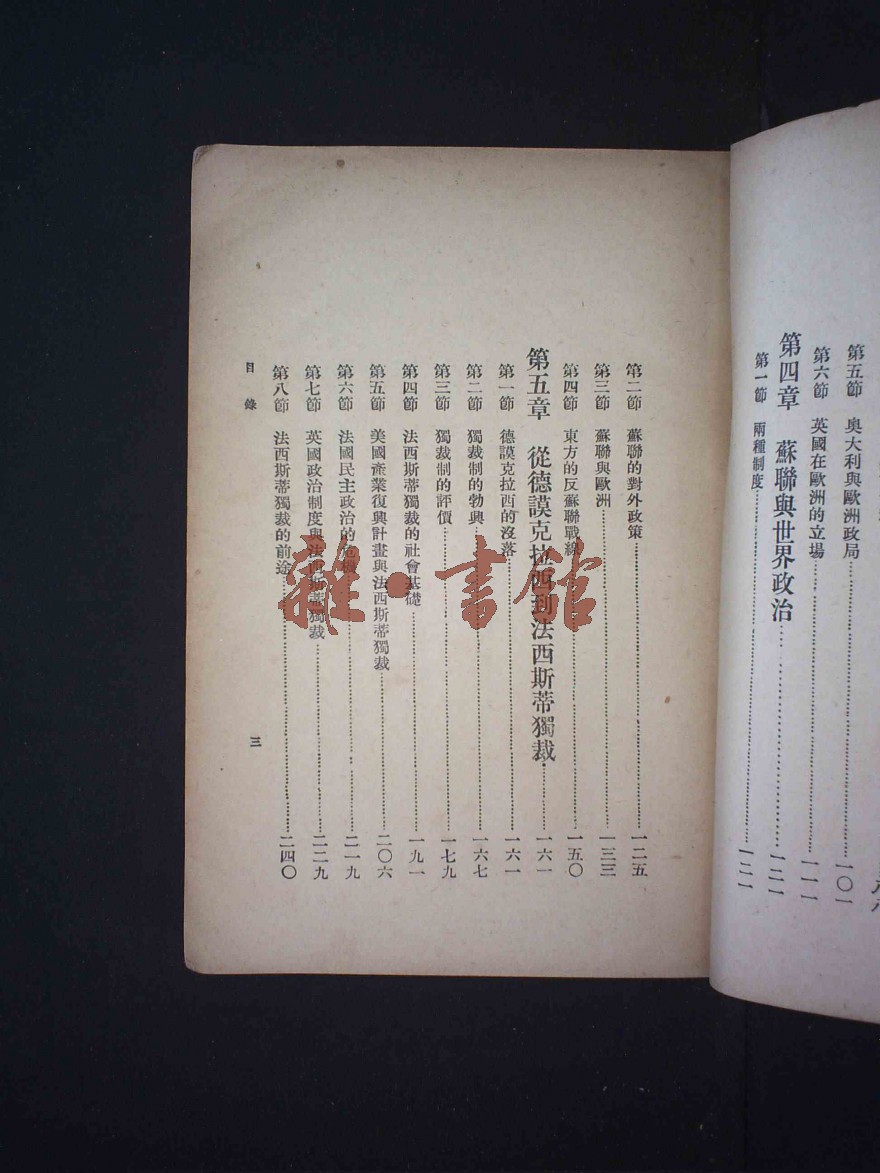 第五節 奧大利與歐洲政局 一〇一
第六節 英國在歐洲的立場 一一一
第四章 蘇聯與世界政治 一二一
第一節 兩種制度 一二一
第二節 蘇聯的對外政策 一二五
第三節 蘇聯與歐洲 一三三
第四節 東方的反蘇聯戰線 一五〇
第五章 從德謨克拉西到法西斯蒂獨裁 一六一
第一節 德謨克拉西的沒落 一六一
第二節 獨裁制的勃興 一六七
第三節 獨裁制的評價 一七九
第四節 法西斯蒂獨裁的社會基礎 一九一
第五節 美國產業復興計畫與法西斯蒂獨裁 二〇六
第六節 法國民主政治的危機 二一九
第七節 英國政治制度與法西斯蒂獨裁 二二九
第八節 法西斯蒂獨裁的前途 二四〇
目錄
三
雜·書館